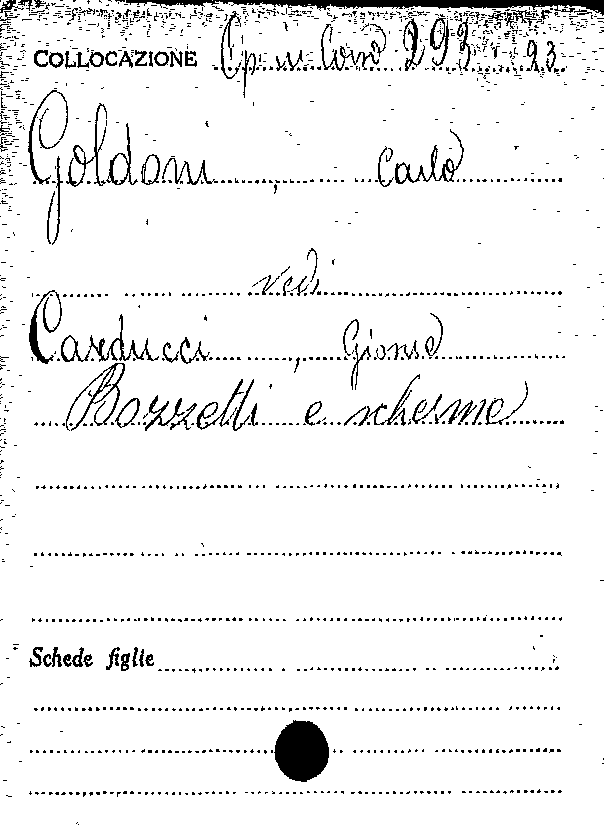 COLLOCAZIONE Op. in Cons 293. 93
Goldoni, Carlo
vedi
Carducci, Giosuè
Bozzetti e scherme
Schede figlie